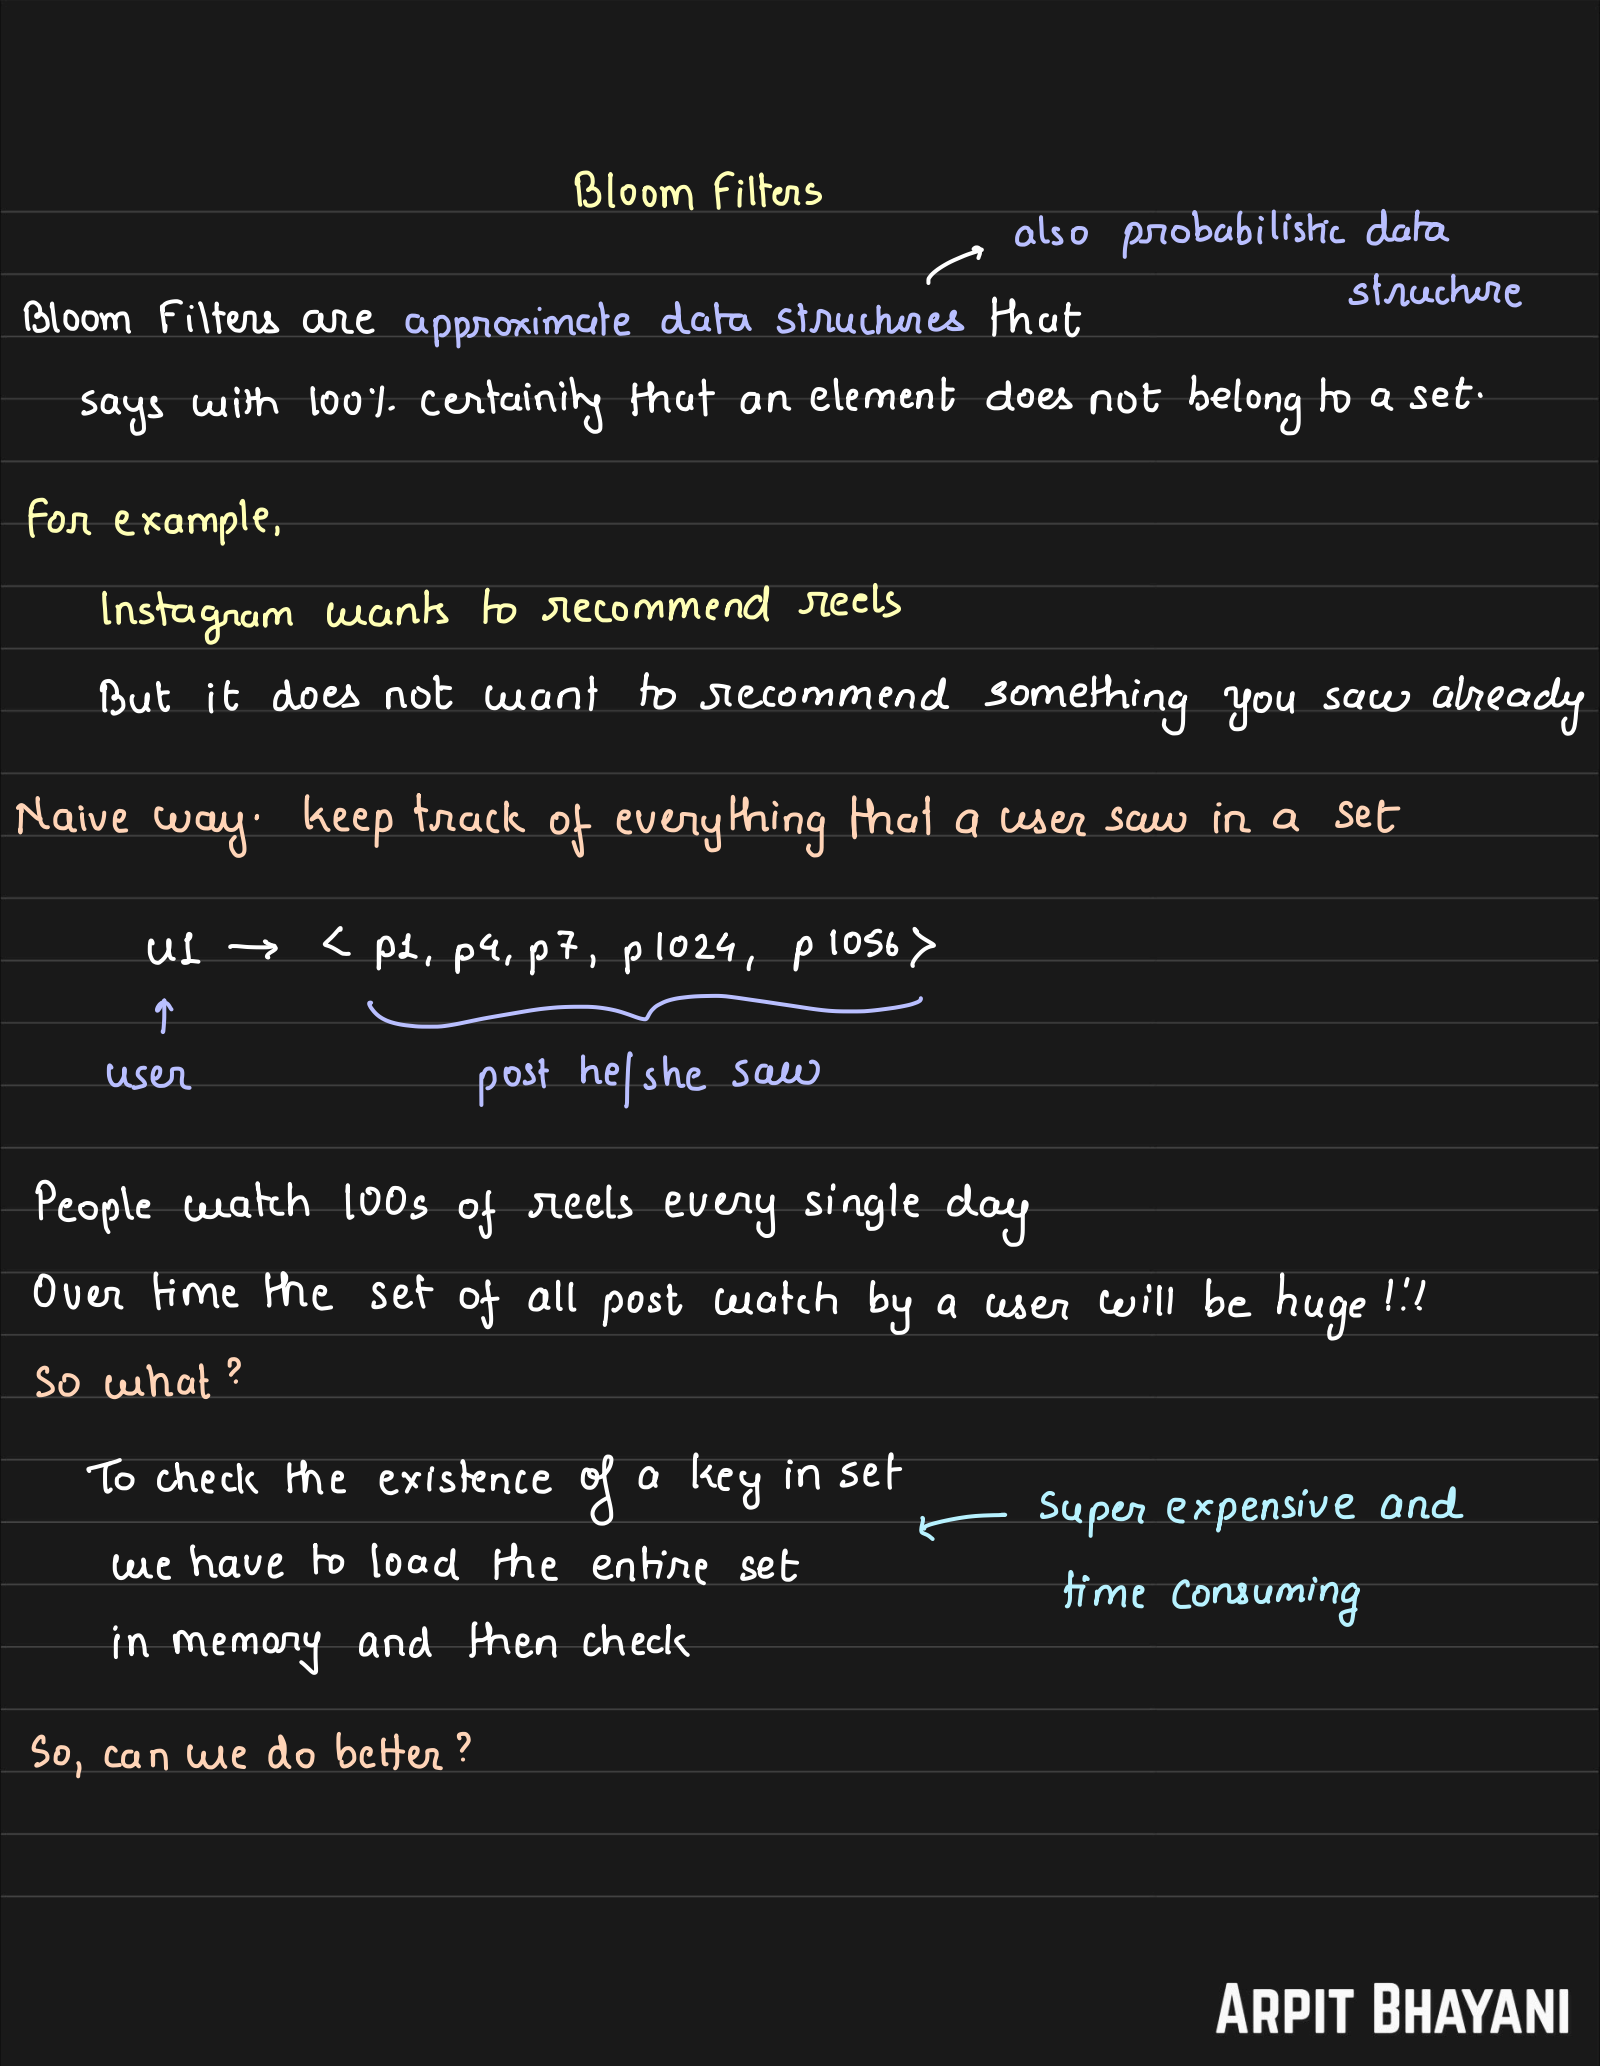 Bloom Filters
also probabilistic data
structure
Bloom Filters are approximate data structures that
says with 100% certainity that an element does not belong to a set.
For example,
Instagram wants to recommend reels
But it does not want to recommend something you saw already
Naive way. keep track of everything that a user saw in a set
u1 → < p1, p4, p7, p1024, p1056>
user
post he/she saw
People watch 100s of reels every single day
Over time the set of all post watch by a user will be huge!!!
So what?
To check the existence of a key in set
we have to load the entire set
in memory and then check
Super expensive and
time consuming
So, can we do better?
ARPIT BHAYANI